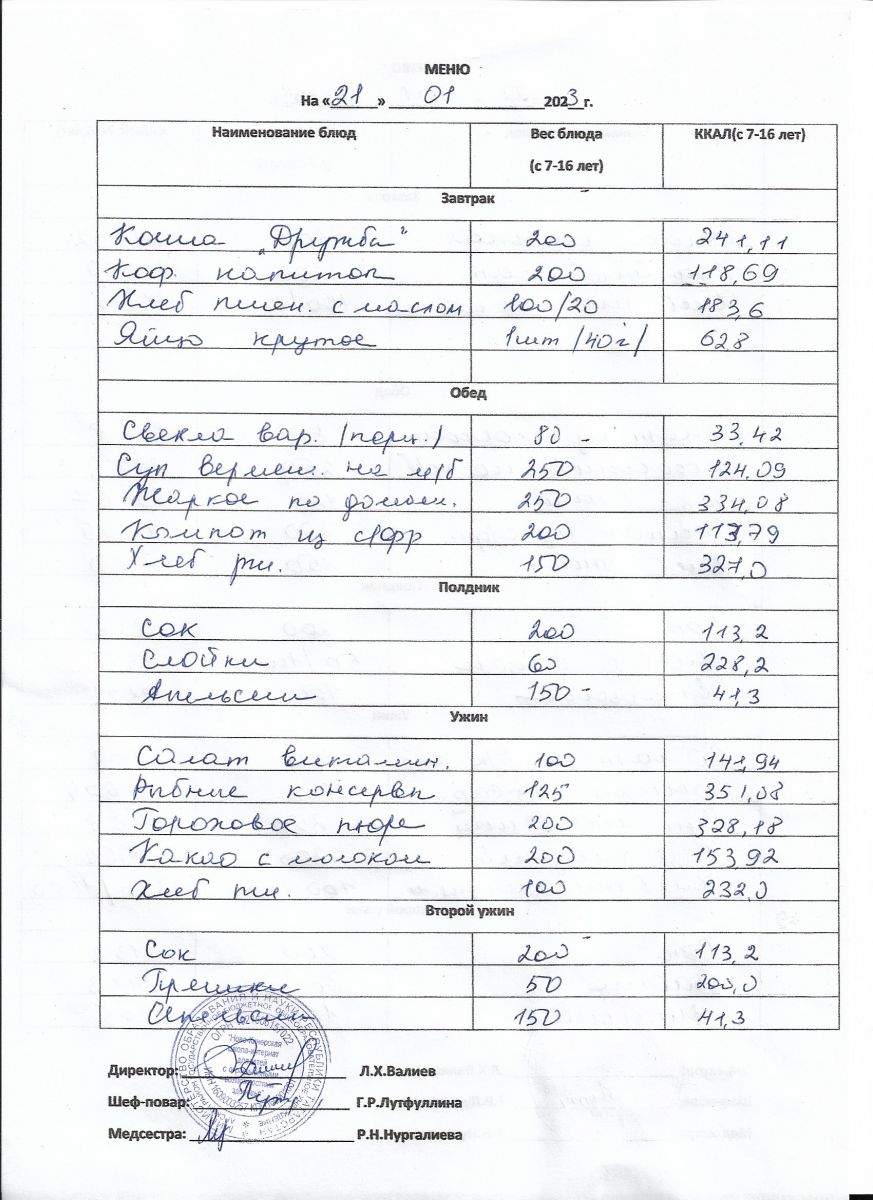 МЕНЮ
На «21» 01 2023 г.
Наименование блюд Вес блюда (с 7-16 лет) ККАЛ(с 7-16 лет)
Завтрак
Каша „Дружба" 200 241,11
Коф. напиток 200 118,69
Хлеб пшен. с маслом 100/20 183,6
Яйцо крутое 1шт /40г/ 628
Обед
Свекла вар. /порц./ 80 33,42
Суп вермиш. на м/б 250 124,09
Жаркое по домаш. 250 334,08
Компот из с/фр 200 113,79
Хлеб пш. 150 327,0
Полдник
Сок 200 113,2
Слойки 60 228,2
Апельсин 150 41,3
Ужин
Салат витамин. 100 141,94
Рыбные консервы 125 351,08
Гороховое пюре 200 328,18
Какао с молоком 200 153,92
Хлеб пш. 100 232,0
Второй ужин
Сок 200 113,2
Пряники 50 200,0
Апельсин 150 41,3
Директор: Л.Х.Валиев
Шеф-повар: Г.Р.Лутфуллина
Медсестра: Р.Н.Нургалиева